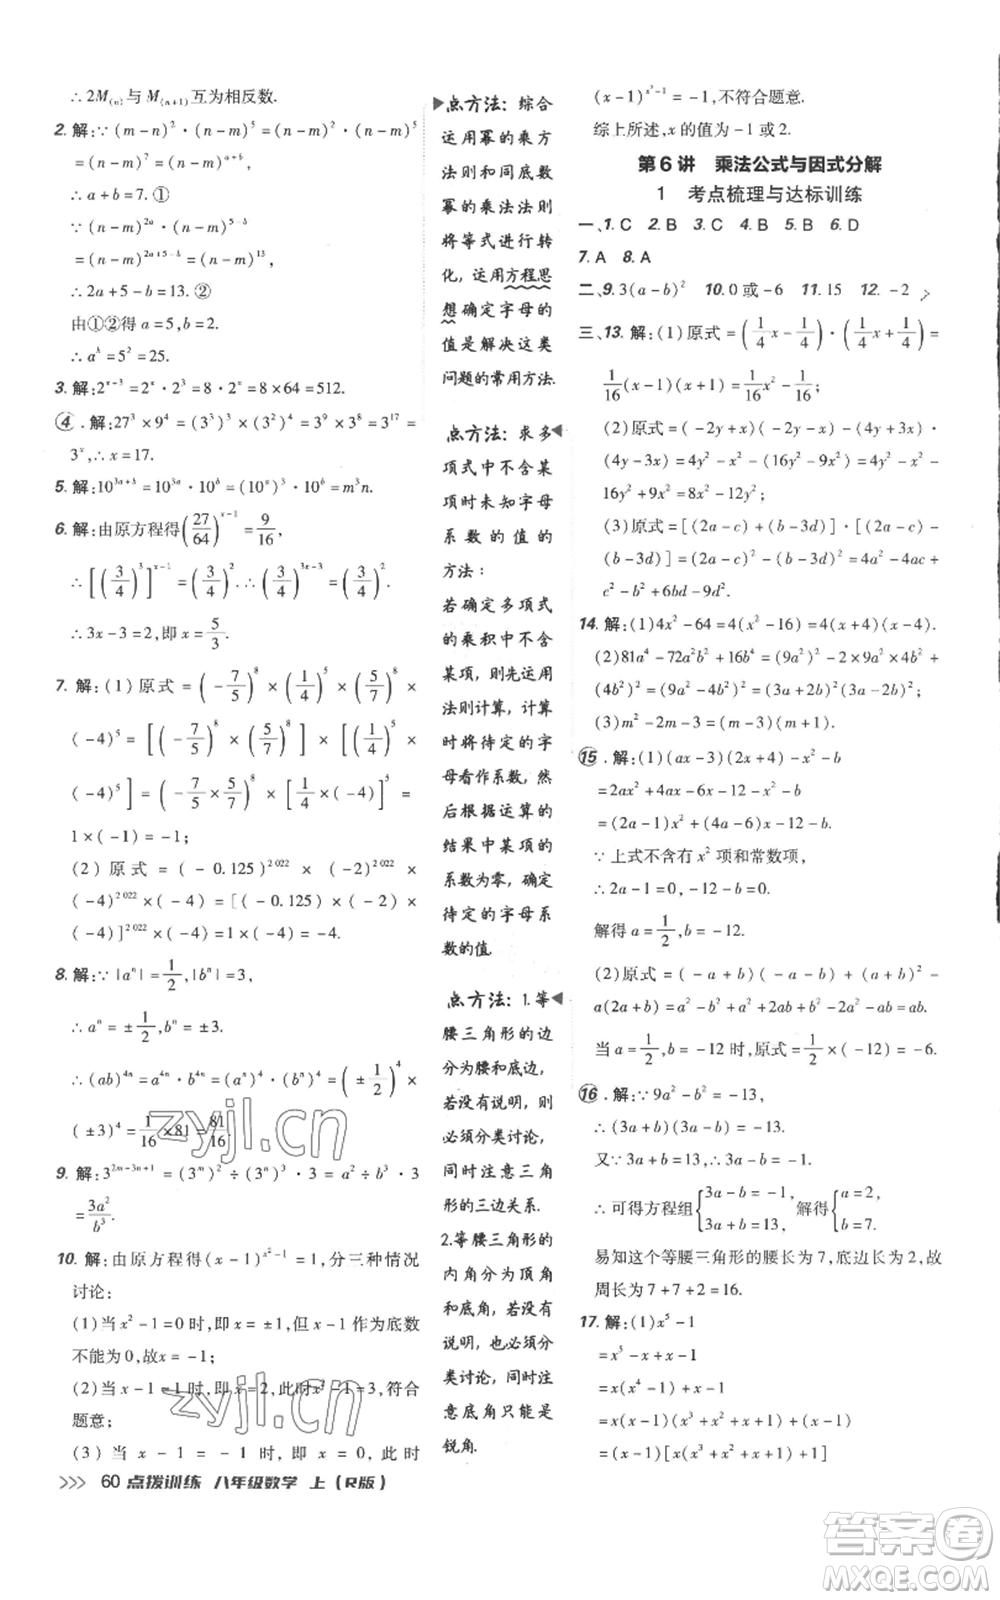 ∴ 2M₍ₙ₎ 与 M₍ₙ₊₁₎ 互为相反数.
2. 解: ∵ (m-n)²·(n-m)⁵=(n-m)²·(n-m)⁵
=(n-m)⁷=(n-m)^{a+b},
∴ a+b=7. ①
∵ (m-n)^{2a}·(n-m)^{5-b}
=(n-m)^{2a+5-b}=(n-m)^{13},
∴ 2a+5-b=13. ②
由①②得 a=5, b=2.
∴ a^b=5²=25.
3. 解: 2^{x+3}=2^x·2³=8·2^x=8×64=512.
④. 解: 27³×9⁴=(3³)³×(3²)⁴=3⁹×3⁸=3^{17}=
3^x, ∴ x=17.
5. 解: 10^{3a+b}=10^{3a}·10^b=(10^a)³·10^b=m³n.
6. 解: 由原方程得(27/64)^{x-1}=9/16,
∴ [(3/4)³]^{x-1}=(3/4)². ∴ (3/4)^{3x-3}=(3/4)².
∴ 3x-3=2, 即 x=5/3.
7. 解: (1)原式=(-7/5)⁸×(1/4)⁵×(5/7)⁸×
(-4)⁵=[(-7/5)⁸×(5/7)⁸]×[(1/4)⁵×
(-4)⁵]=(-7/5×5/7)⁸×[1/4×(-4)]⁵=
1×(-1)=-1;
(2)原式=(-0.125)^{2022}×(-2)^{2022}×
(-4)^{2022}×(-4)=[(-0.125)×(-2)×
(-4)]^{2022}×(-4)=1×(-4)=-4.
8. 解: ∵ |aⁿ|=1/2, |bⁿ|=3,
∴ aⁿ=±1/2, bⁿ=±3.
∴ (ab)^{4n}=a^{4n}·b^{4n}=(aⁿ)⁴·(bⁿ)⁴=(±1/2)⁴×
(±3)⁴=1/16×81=81/16.
9. 解: 3^{2m-3n+1}=(3^m)²÷(3ⁿ)³×3=a²÷b³·3
=3a²/b³.
10. 解: 由原方程得(x-1)^{x²-1}=1, 分三种情况
讨论:
(1)当 x²-1=0时, 即 x=±1, x-1作为底数
不能为0, 故x=-1;
(2)当 x-1=1时, 即x=2, 此时x²-1=3, 符合
题意;
(3)当 x-1=-1时, 即 x=0, 此时
点方法: 综合
运用幂的乘方
法则和同底数
幂的乘法法则
将等式进行转
化, 运用方程思
想确定字母的
值是解决这类
问题的常用方法.
点方法: 求多
项式中不含某
项时未知字母
系数的值的
方法:
若确定多项式
的乘积中不含
某项, 则先运用
法则计算, 计算
时将待定的字
母看作系数, 然
后根据运算的
结果中某项的
系数为零, 确定
待定的字母系
数的值.
点方法: 1.等
腰三角形的边
分为腰和底边,
若没有说明, 则
必须分类讨论,
同时注意三角
形的三边关系.
2.等腰三角形的
内角分为顶角
和底角, 若没有
说明, 也必须分
类讨论, 同时注
意底角只能是
锐角.
(x-1)^{x²-1}=-1, 不符合题意.
综上所述, x 的值为 -1 或 2.
第6讲 乘法公式与因式分解
1 考点梳理与达标训练
一、1. C 2. B 3. C 4. A 5. B 6. D
7. A 8. A
二、9. 3(a-b)² 10. 0 或 -6 11. 15 12. -2
三、13. 解: (1)原式=(1/4x-1/4)·(1/4x+1/4)=
1/16(x-1)(x+1)=1/16x²-1/16;
(2)原式=(-2y+x)(-2y-x)(4y-3)·
(4y+3)=(4y²-x²)(16y²-9)=64y⁴-36y²-
16x²y²+9x²;
(3)原式=[(2a-c)+(b-3d)]·[(2a-c)-
(b-3d)]=(2a-c)²-(b-3d)²=4a²-4ac+
c²-b²+6bd-9d².
14. 解: (1)4x²-64=4(x²-16)=4(x+4)(x-4).
(2)81a⁴-72a²b²+16b⁴=(9a²)²-2×9a²×
(4b²)+(4b²)²=(9a²-4b²)²=(3a+2b)²(3a-2b)²;
(3)m²-2m-3=(m-3)(m+1).
⑮. 解: (1)(ax-3)(2x+4)-x²-b
=2ax²+4ax-6x-12-x²-b
=(2a-1)x²+(4a-6)x-12-b.
∵ 上式不含有 x² 项和常数项,
∴ 2a-1=0, -12-b=0.
解得 a=1/2, b=-12.
(2)原式=(-a+b)(-a-b)+(-a-b)²-
a(2a+b)=a²-b²+a²+2ab+b²-2a²-ab=ab.
当 a=1/2, b=-12 时, 原式=1/2×(-12)=-6.
⑯. 解: ∵ 9a²-b²=-13,
∴ (3a+b)(3a-b)=-13.
又∵ 3a+b=13, ∴ 3a-b=-1.
∴ 可得方程组{3a-b=-1, 3a+b=13, 解得{a=2, b=7.
易知这个等腰三角形的腰长为 7, 底边长为 2, 故
周长为 7+7+2=16.
17. 解: (1)x⁵-1
=x⁵-x+x-1
=x(x⁴-1)+(x-1)
=x(x-1)(x³+x²+x+1)+(x-1)
=(x-1)[x(x³+x²+x+1)+1]
>>> 60 点拨训练 八年级数学 上(R版)
zyjl.cn
zyjl.cn
答案卷
MXQE.COM